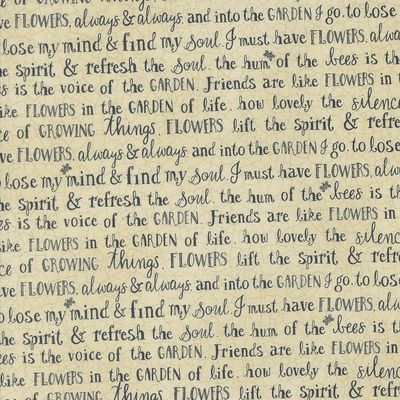 of GROWING things. FLOWERS
FLOWERS, always & always. and into the GARDEN I go. to lose
lose my mind & find my Soul. I must have FLOWERS, alwa
he Spirit & refresh the Soul. the hum of the bees is th
is the voice of the GARDEN. Friends are like FLOWERS in t
like FLOWERS in the GARDEN of life. how lovely the silence
ce of GROWING things. FLOWERS lift the Spirit & refre
ve FLOWERS, always & always. and into the GARDEN I go. to lose
o lose my mind & find my Soul. I must have FLOWERS, alw
he Spirit & refresh the Soul. the hum of the bees is th
es is the voice of the GARDEN. Friends are like FLOWERS in
like FLOWERS in the GARDEN of life. how lovely the silenc
ce of GROWING things. FLOWERS lift the Spirit & refr
ve FLOWERS, always & always. and into the GARDEN I go. to los
to lose my mind & find my Soul. I must have FLOWERS, al
the Spirit & refresh the Soul. the hum of the bees is t
es is the voice of the GARDEN. Friends are like FLOWERS in
like FLOWERS in the GARDEN of life. how lovely the silen
of GROWING things. FLOWERS lift the Spirit & ref